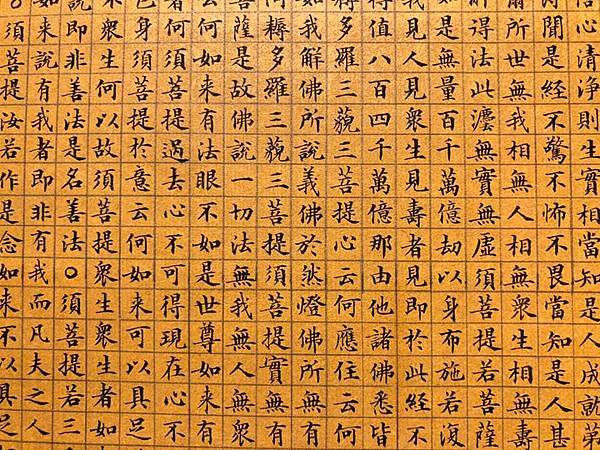 信心清淨則生實相當知是人成就第
聞是經不驚不怖不畏當知是人甚
所世無我相無人相無衆生相無壽
得法此灋無實無虛須菩提若菩薩
是無量百千萬億劫以身布施若復
我見人見衆生見壽者見即於此經不
得值八百四千萬億那由他諸佛悉皆
多羅三藐三菩提心云何應住云何
如我解佛所說義佛於然燈佛所無有
耨多羅三藐三菩提須菩提實無有
菩薩是故佛說一切法無我無人無衆
何如來有法眼不如是世尊如來有
何須菩提過去心不可得現在心不
身須菩提於意云何如來可以具足
衆生何以故須菩提衆生衆生者如
說即非善法是名善法〇須菩提若三
如來說有我者即非有我而凡夫之人
〇須菩提汝若作是念如來不以具足